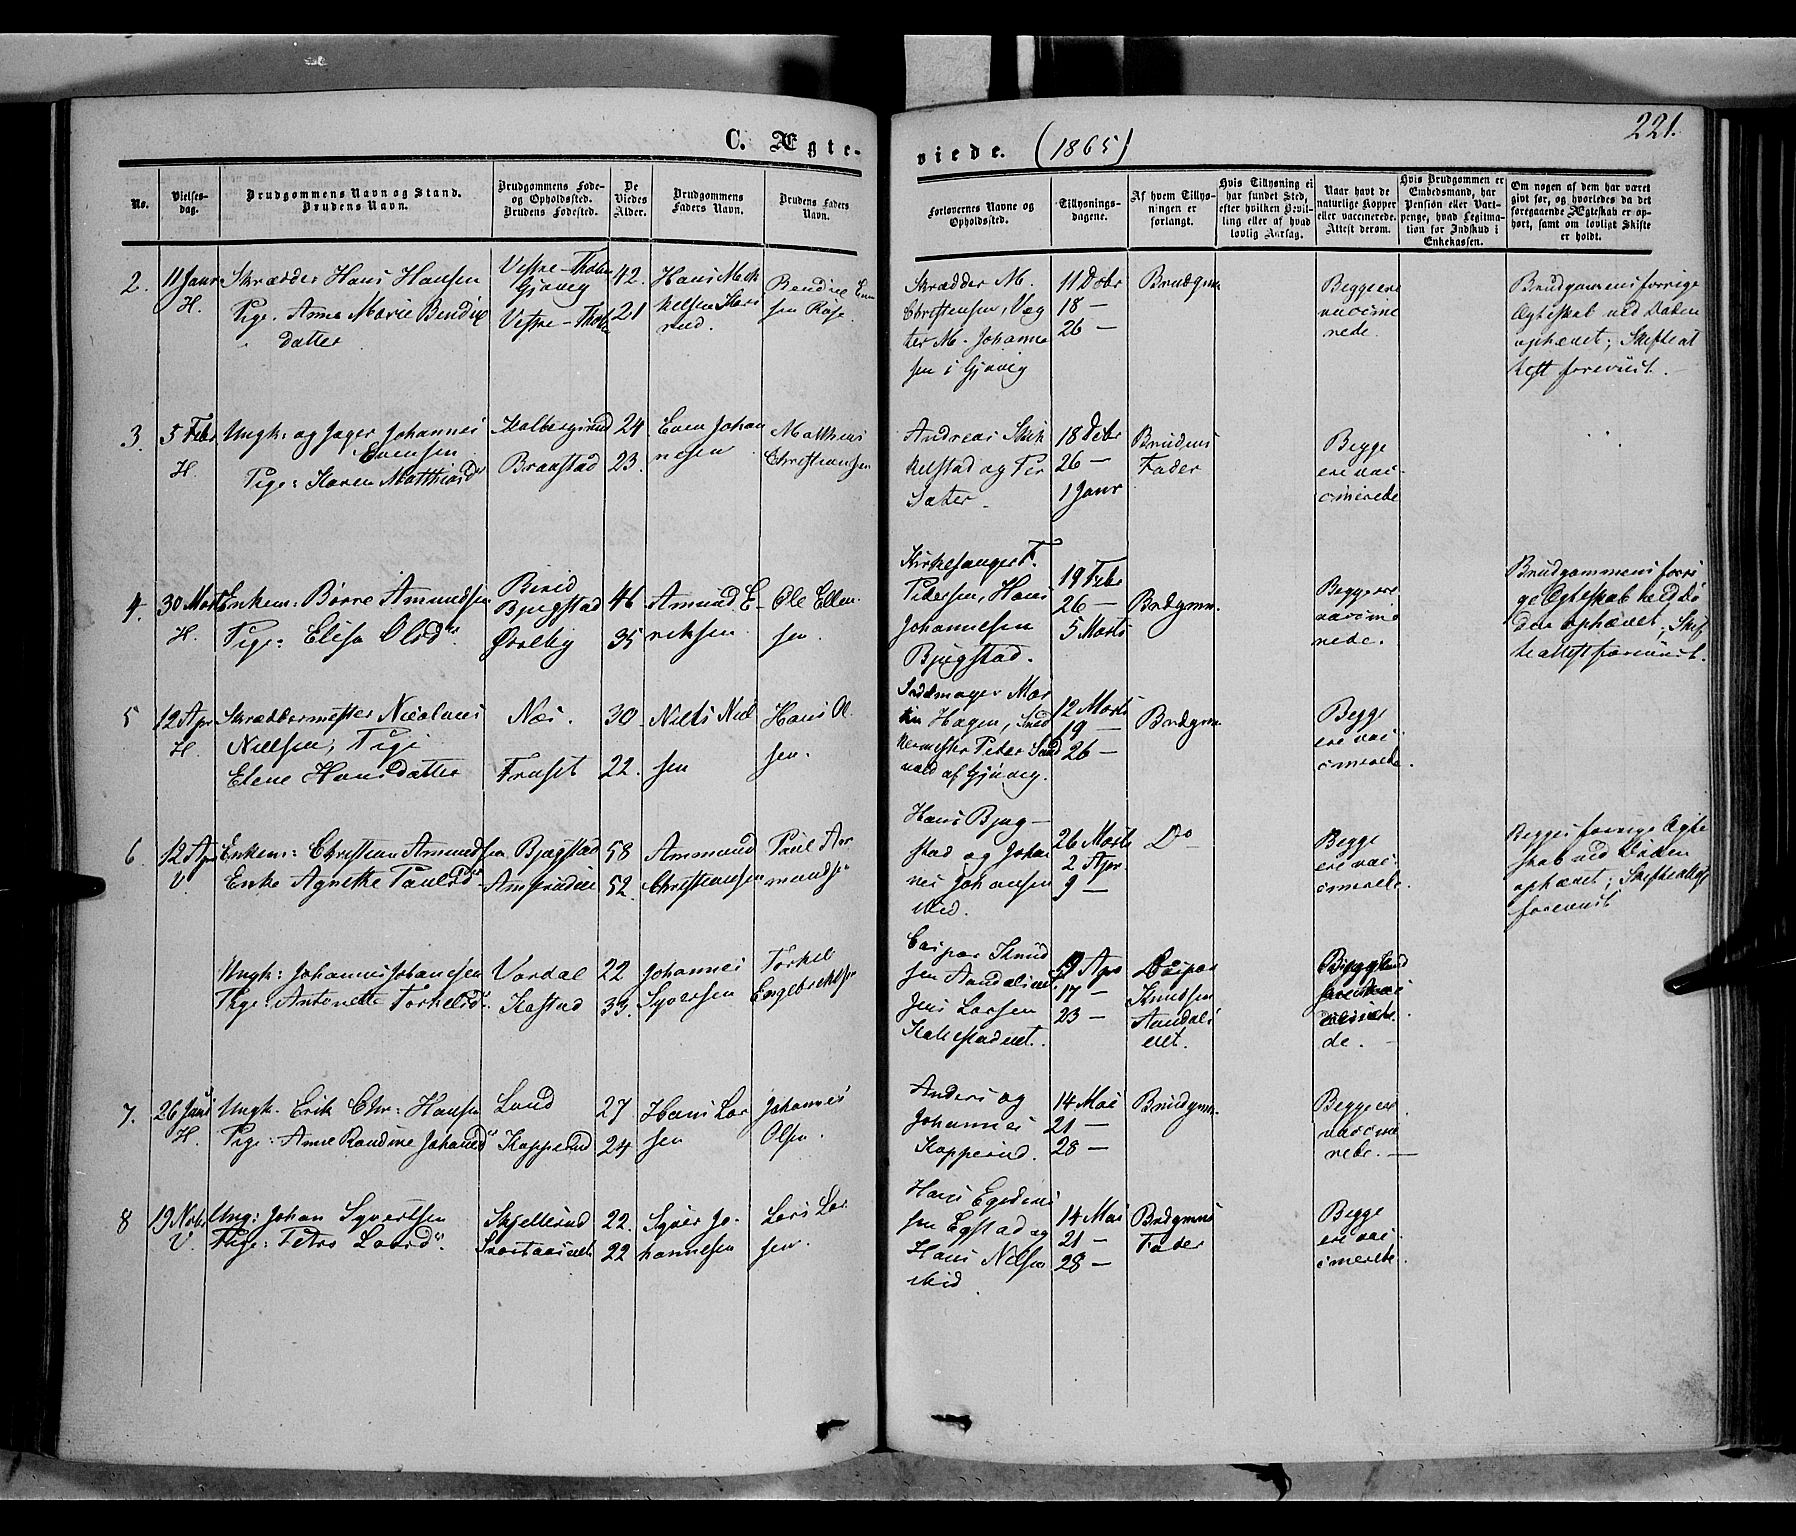 C. Ægte-
viede. (1865)
221.
No.
Vielses-
dag.
Brudgommens Navn og Stand.
Brudens Navn.
Brudgommens Føde-
og Opholdsted.
Brudens Fødested.
De
Viedes
Alder.
Brudgommens
Faders Navn.
Brudens Faders
Navn.
Forlovernes Navne og
Opholdsted.
Tillysnings-
dagene.
Af hvem Tillys-
ningen er
forlangt.
Hvis Tillysning ei
har fundet Sted,
efter hvilken Bevil-
ling eller af hvad
lovlig Aarsag.
Naar havt de
naturlige Kopper
eller vaccinerede.
Attest derom.
Hvis Brudgommen er
Embedsmand, har
Pension eller Vart-
penge, hvad Legitima-
tion for Indskud i
Enkekassen.
Om nogen af dem har været
givt før, og hvorledes da det
foregaaende Ægteskab er op-
hørt, samt om lovligt Skifte
er holdt.
2. 11 Janr
H.
Skrædder Hans Hansen
Pige. Anne Marie Bendix
datter
Vestre-Thoten
Gjøvig
Vestre-Thoten
42.
21
Hans Mik
kelsen
Bendix
Skrædder M.
Christensen, Væg
ter M. Johanne
sen i Gjøvig
11 Debr
18 —
26 —
Brudgmn
Begge ere
vaccine
rede.
Brudgommens forrige
Ægteskab ved Døden
ophævet; Skifteat
test foreviist.
3. 5 Febr
H.
Ungk: og Jæger Johannes
Evensen
Pige: Karen Matthiasdr
Kolbergsrud
Braastad
24
23.
Even Johan
nesen
Matthias
Christiansen
Andreas Skik
kelstad og Per
Sæter.
18 Debr
26 —
1 Janr
Brudens
Fader
Begge
ere vac-
cinerede
4. 30 Mart
H.
Enkem: Børre Amundsen
Pige: Elisa Olsdr
Birid
Bjugstad
46
35
Amund E-
riksen.
Ole Ellen
sen.
Kirkesanger F.
Pedersen, Hans
Johannesen
Bjugstad.
19 Febr
26 —
5 Marts
Brdgmn.
Begge ere
vaccine
rede.
Brudgommens forri
ge Ægteskab ved Dø
den ophævet; Skif
teattest foreviist.
5 12 Apr
H.
Skræddermester Nicolaus
Nielsen; Pige
Elene Hansdatter
Næs.
Fruset
30
22.
Niels Niel
sen
Hans Ol
sen.
Hagen, Sned
kermester Peter
af Gjøvig.
12 Marts
19 —
26 —
Brdgmn
Begge
ere vac-
cinerede.
6. 12 Apr
V
Enkem: Christian Amundsen
Enke Agnethe Paulsdr
Bjugstad
58
52.
Ammund
Christiansen
Paul Am
mundsen
Hans Bjug-
stad og Johan
nes Johansen
ibid.
26 Marts
2 Apr.
9 —
Do
Begge
ere vac-
cinerede.
Begges forrige Ægte
skab ved Døden
ophævet; Skifteattest
foreviist
Ungk: Johannes Johanesen
Pige: Antonette Torkelsdr.
Vardal
Kastad
22
33.
Johannes
Syversen
Torkel
Engebrethsen
Caspar Knud
sen
Jens Larsen
9 Apr
17 —
23 —
Caspar
Knudsen
de.
7. 26 Juni
H.
Ungk. Erik Chr: Hansen
Pige: Anne Randine Johansdr
Land
Kopperud
27
24
Hans Lar
sen
Johannes
Olsen.
Anders og
Johannes
Kopperud.
14 Mai
21 —
28 —
Brudgmn.
Begge ere
vaccine
rede.
8 19 Novbr
V.
Ung: Johan Syvertsen
Pige: Petra Larsdr.
Skjellerud
22.
22
Syver Jo-
hannesen
Lars Lar
sen.
Hans Egedius
sen Egstad og
Hans Nilsen
ibid
14 Mai
21 —
28 —
Brdgmns
Fader
Begge
ere vac-
cinerede.